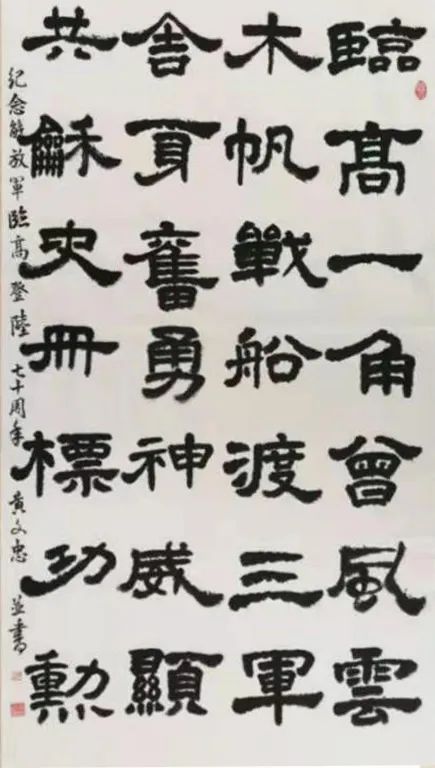 臨高一角曾風雲
木帆戰船渡三軍
舍身奮勇神威顯
共龢史冊標功勳
紀念解放軍臨高登陸七十周年 黄文忠並書